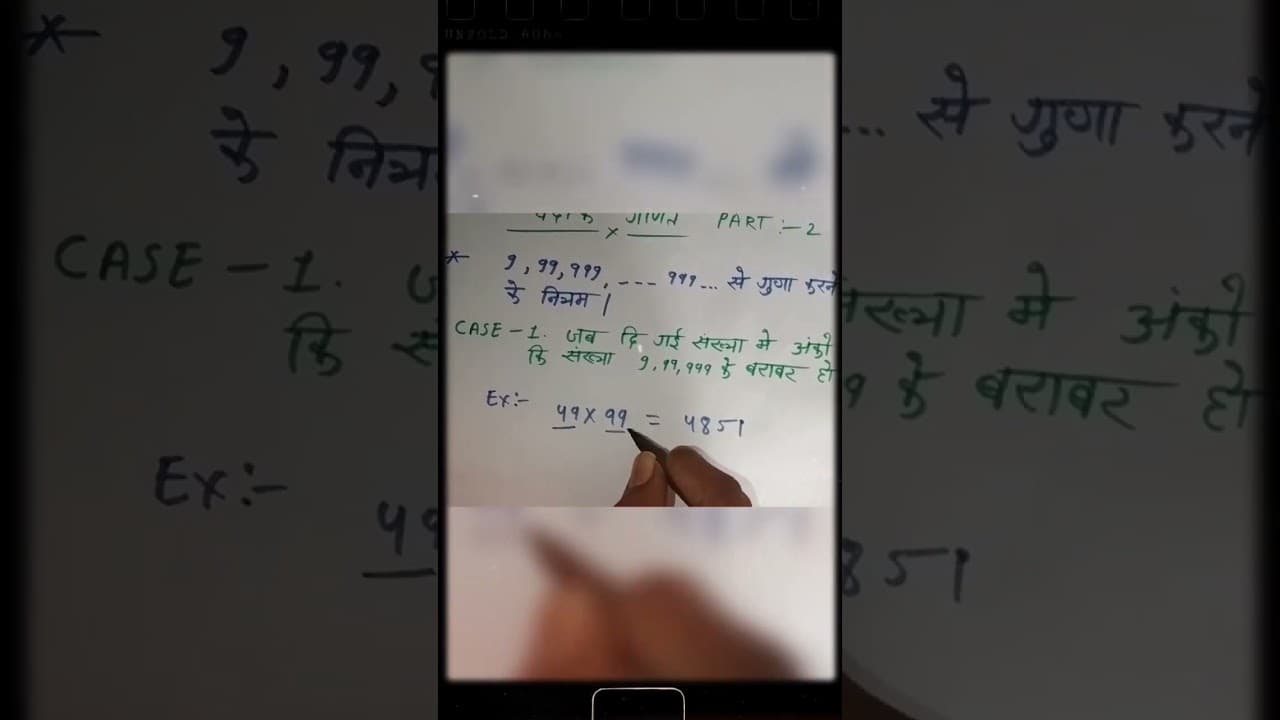 गणित PART :- 2
* 9, 99, 999, --- 999... से गुणा करने
के नियम |
CASE - 1. जब दि गई संख्या मे अंको
कि संख्या 9, 99, 999 के बराबर हो
Ex:- 49 x 99 = 4851